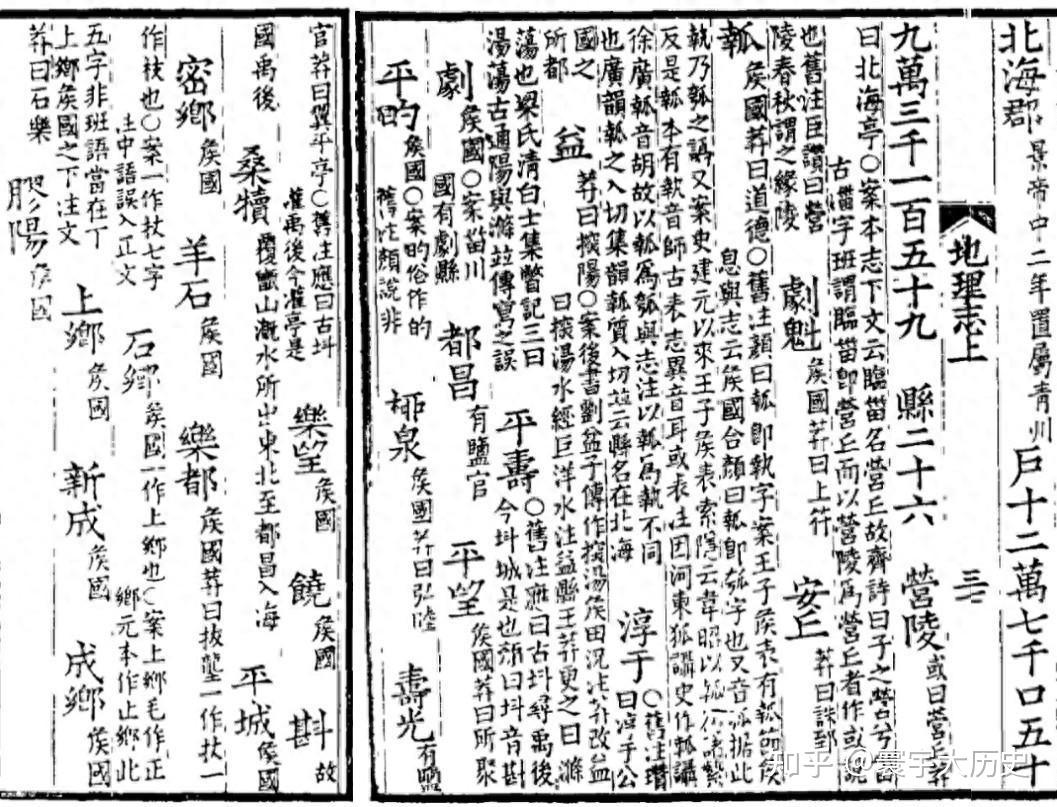 北海郡 景帝中二年置屬青州 戶十二萬七千口五十
地理志上 三
九萬三千一百五十九 縣二十六 營陵 或曰營丘莽
曰北海亭〇案本志下文云臨甾名營丘故齊詩曰子之營兮
古甾字班謂臨甾即營丘而以營陵爲營丘者作或說
也舊注臣瓚曰營
陵春秋謂之緣陵 劇魁 侯國莽曰上符 安丘 莽曰誅郅
瓡 侯國莽曰道德〇舊注顏曰瓡即執字案王子侯表有瓡節侯
息與志云侯國合顏曰瓡即瓠字也又音孤据此
執乃瓠之譌又案史建元以來王子侯表索隱云韋昭以瓡
反是瓡本有執音師古表志異音耳或表注因河東狐讘史作瓡讘
徐廣瓡音胡故以瓡爲瓠與志注以瓡爲執不同
也廣韻瓡之入切集韻瓡質入切並云縣名在北海 淳于 〇舊注瓚曰淳于公
國之所都 益 莽曰探陽〇案後書劉盆子傳作探湯侯田況注莽改益
曰探湯水經巨洋水注益縣王莽更之曰滌
蕩也梁氏清白士集瞥記三曰
湯蕩古通陽與滌竝傳寫之誤 平壽 〇舊注應曰古㪷尋禹後今㪷城是也顏曰㪷音斟
劇 侯國〇案甾川國有劇縣 都昌 有鹽官 平望 侯國莽曰所聚
平的 侯國〇案的俗作的舊注顏說非 柳泉 侯國莽曰弘陸 壽光 有鹽
官莽曰翼平亭〇舊注應曰古㪷
灌禹後今灌亭是 樂望 侯國 饒 侯國 斟 故
國禹後 桑犢 覆甑山溉水所出東北至都昌入海 平城 侯國
密鄉 侯國 羊石 侯國 樂都 侯國莽曰拔壟一作扙一
作枝也〇案一作扙七字
注中語誤入正文 石鄉 侯國一作上鄉也〇案上鄉毛作正鄉元本作止鄉此
五字非班語當在丁
上鄉侯國之下注文 上鄉 侯國 新成 侯國 成鄉 侯國
莽曰石樂 膠陽 侯國
知乎 @寰宇大历史